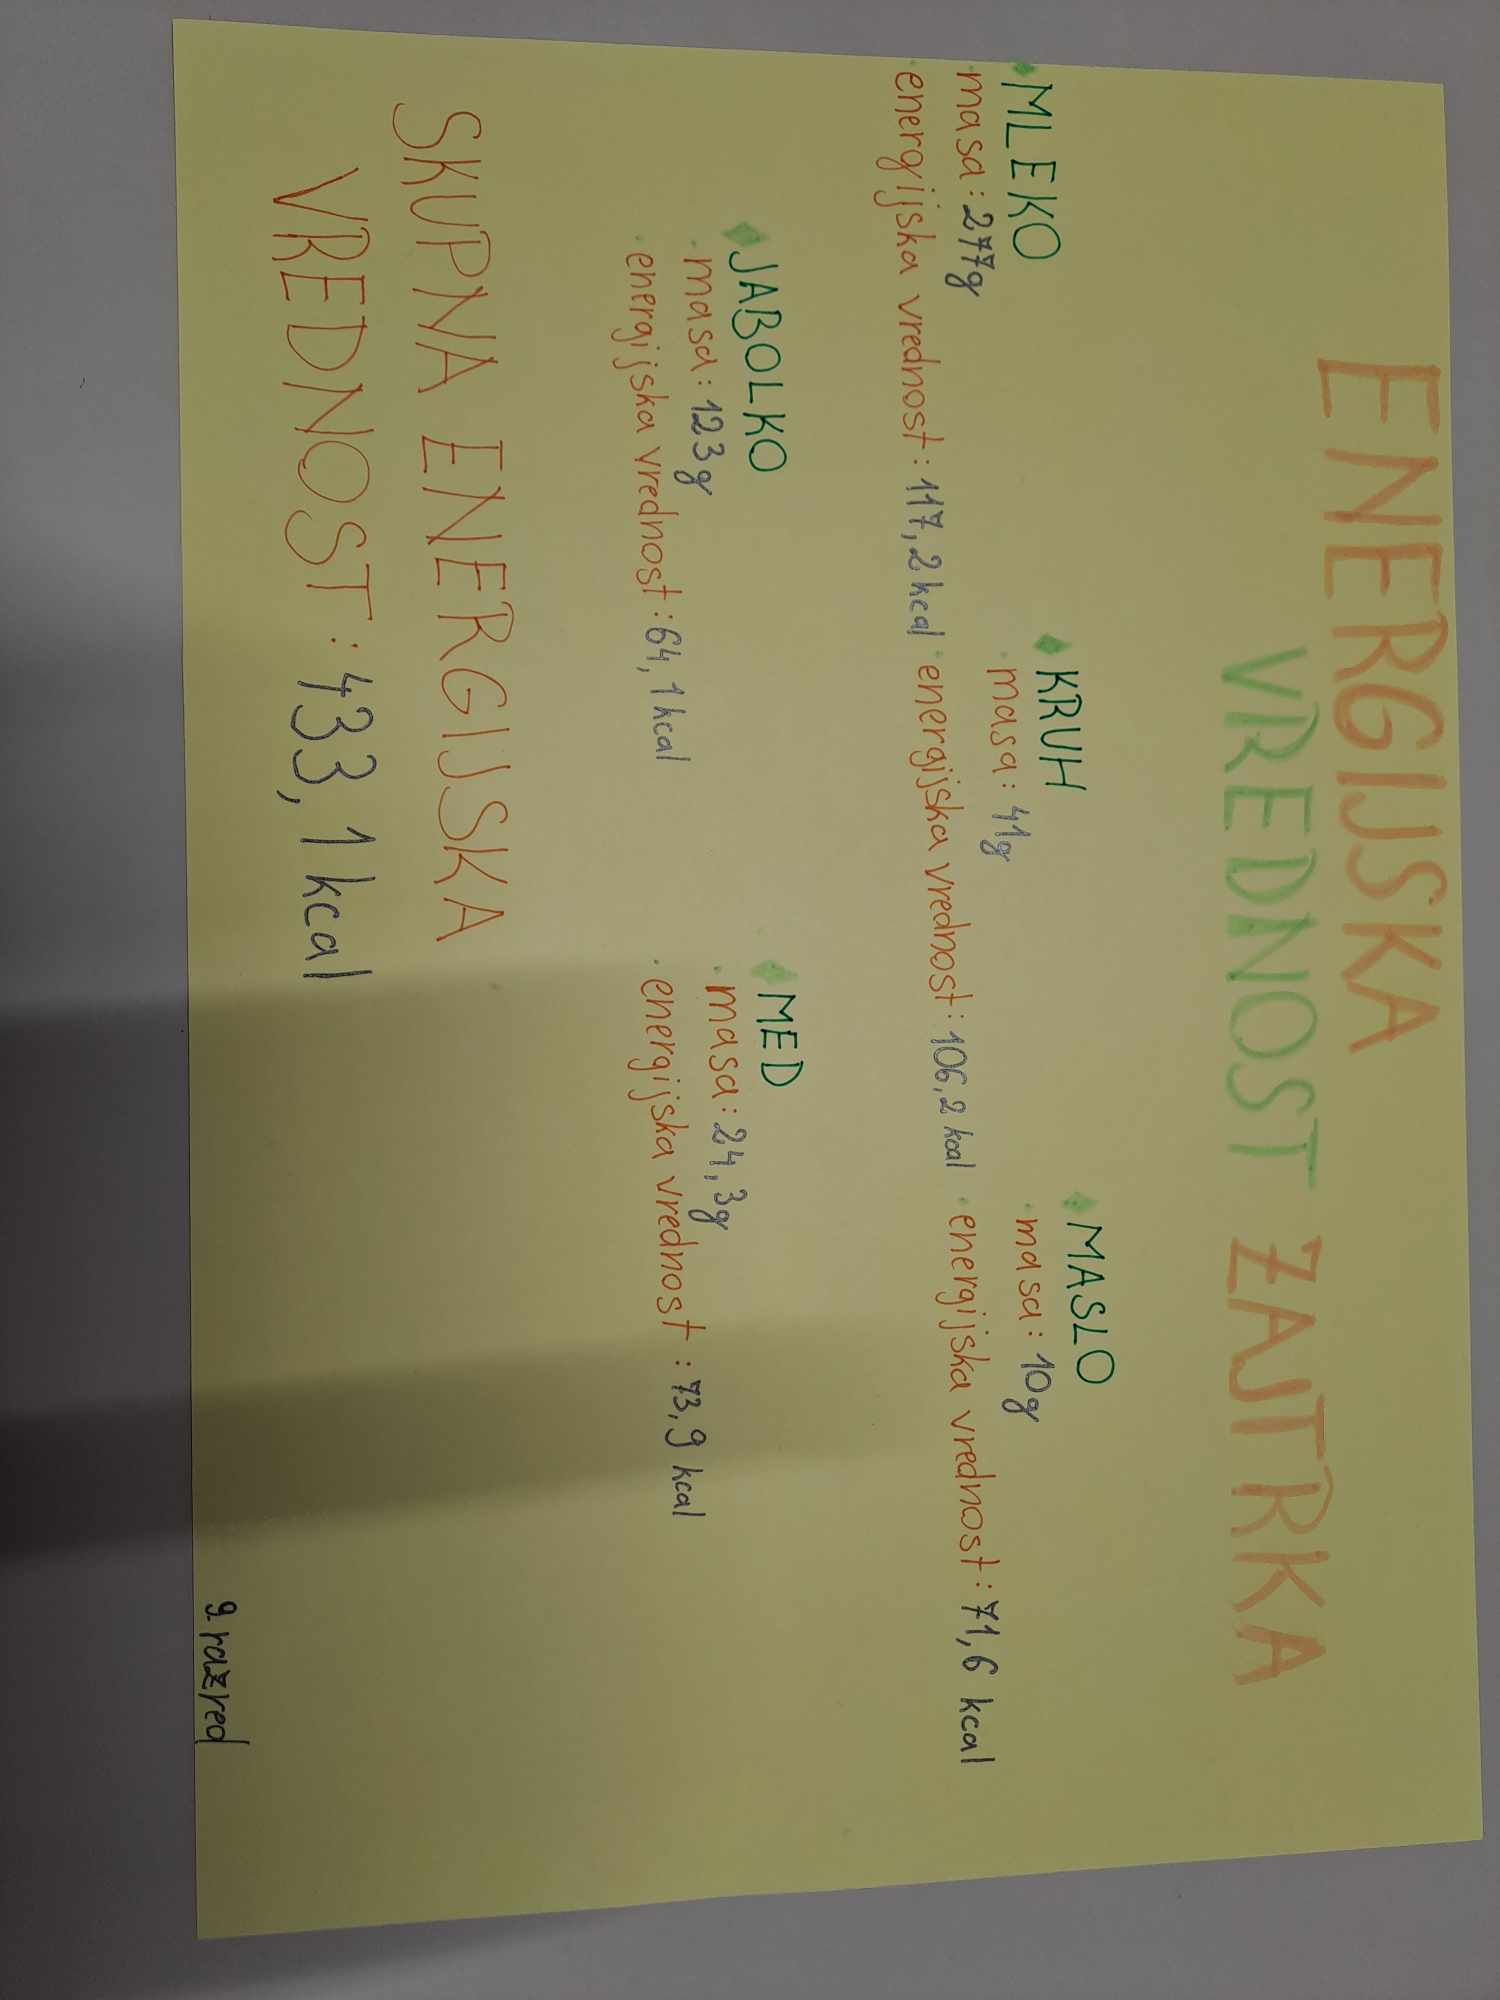 ENERGIJSKA
VREDNOST ZAJTRKA
MLEKO
masa: 277g
energijska vrednost: 117,2 kcal
KRUH
masa: 41g
energijska vrednost: 106,2 kcal
MASLO
masa: 10g
energijska vrednost: 71,6 kcal
JABOLKO
masa: 123g
energijska vrednost: 64,1 kcal
MED
masa: 24,3g
energijska vrednost: 73,9 kcal
SKUPNA ENERGIJSKA
VREDNOST: 433,1 kcal
9. razred